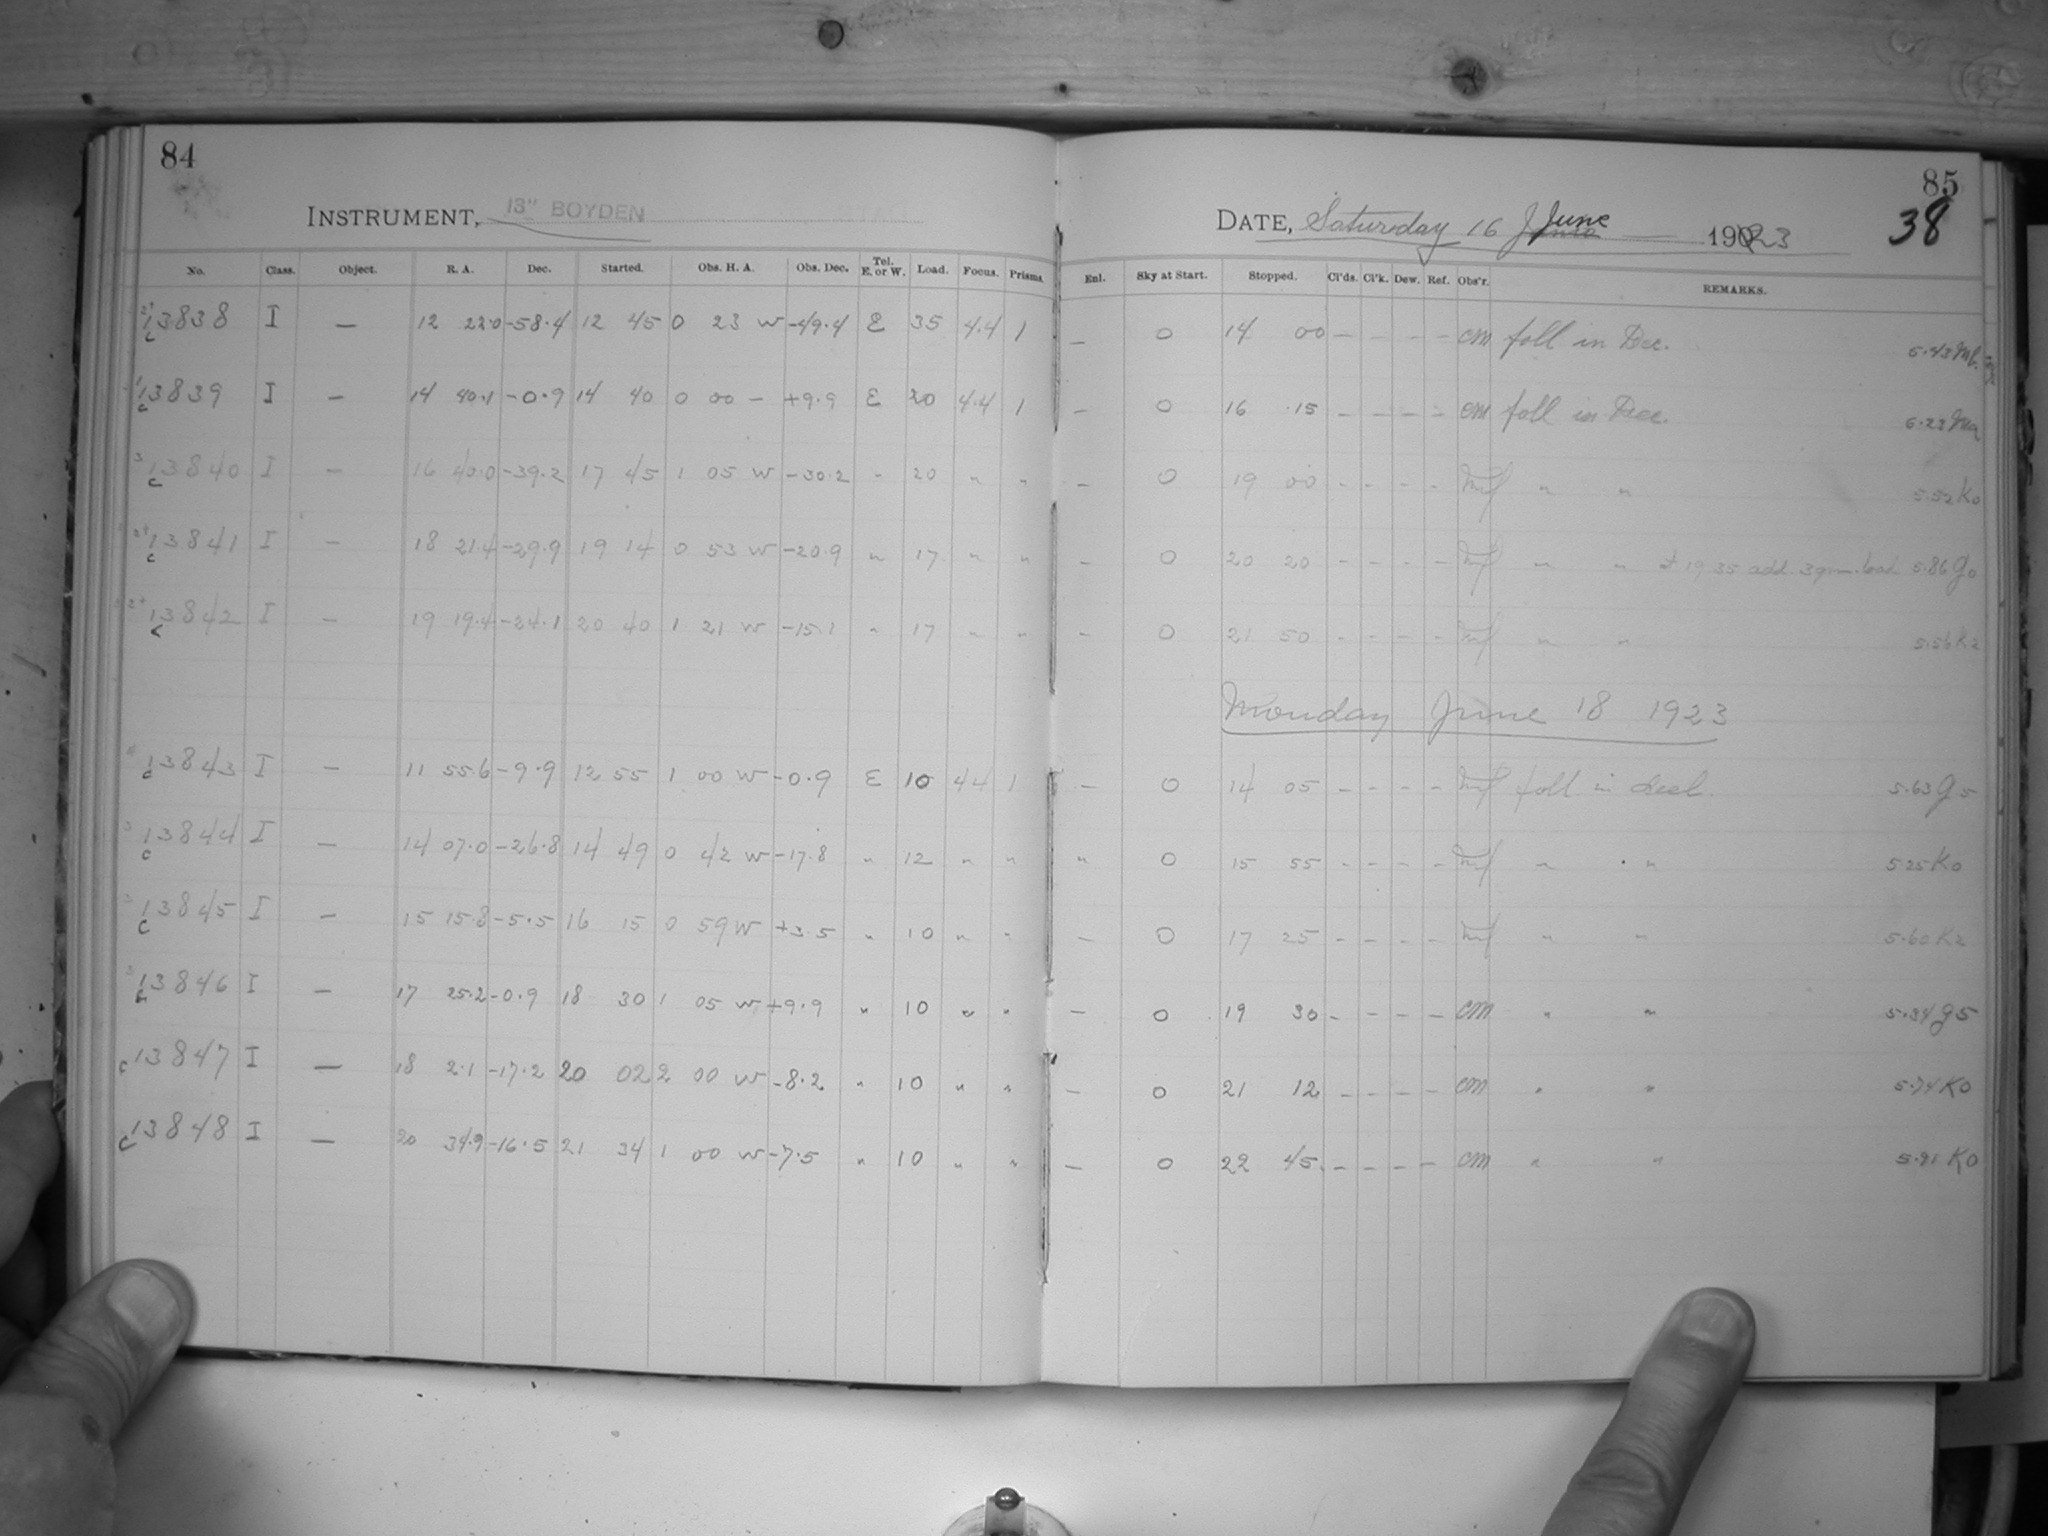 84
INSTRUMENT, 13" BOYDEN
No. Class. Object. R. A. Dec. Started. Obs. H. A. Obs. Dec. Tel. E. or W. Load. Focus. Prisms.
13838 I — 12 22.0 -58.4 12 45 0 23 W -49.4 E 35 4.4 1
c
13839 I — 14 40.1 -0.9 14 40 0 00 — +9.9 E 20 4.4 1
c
13840 I — 16 40.0 -39.2 17 45 1 05 W -30.2 " 20 " "
c
13841 I — 18 21.4 -29.9 19 14 0 53 W -20.9 " 17 " "
c
13842 I — 19 19.4 -24.1 20 40 1 21 W -15.1 " 17 " "
c
13843 I — 11 55.6 -9.9 12 55 1 00 W -0.9 E 10 4.4 1
c
13844 I — 14 07.0 -26.8 14 49 0 42 W -17.8 " 12 " "
c
13845 I — 15 15.8 -5.5 16 15 0 59 W +3.5 " 10 " "
c
13846 I — 17 25.2 -0.9 18 30 1 05 W +9.9 " 10 " "
c
13847 I — 18 2.1 -17.2 20 02 2 00 W -8.2 " 10 " "
c
13848 I — 20 34.9 -16.5 21 34 1 00 W -7.5 " 10 " "
c
85
38
DATE, Saturday 16 June 1923
Enl. Sky at Start. Stopped. Cl'ds. Cl'k. Dew. Ref. Obs'r. REMARKS.
— 0 14 00 — — — — cm foll in Dec. 5.43 Mb
— 0 16 15 — — — — cm foll in Dec. 6.22 Ma
— 0 19 00 — — — — " " 5.52 K0
— 0 20 20 — — — — " " 19 35 add. 3 gm. load 5.86 g0
— 0 21 50 — — — — " " 5.56 K2
Monday June 18 1923
— 0 14 05 — — — — foll in decl. 5.63 g5
" 0 15 55 — — — — " " 5.25 K0
— 0 17 25 — — — — " " 5.60 K2
— 0 19 30 — — — — cm " " 5.34 g5
— 0 21 12 — — — — cm " " 5.74 K0
— 0 22 45 — — — — cm " " 5.91 K0